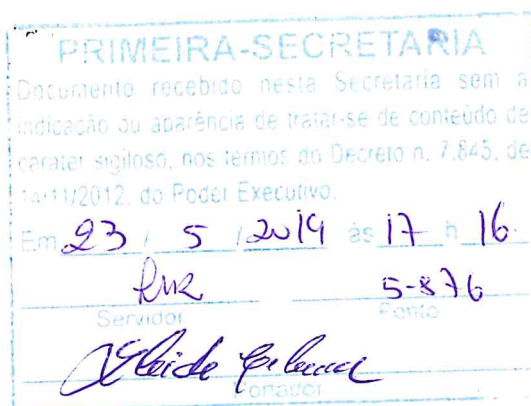 PRIMEIRA-SECRETARIA
Documento recebido nesta Secretaria sem a
indicação ou aparência de tratar-se de conteúdo de
caráter sigiloso, nos termos do Decreto n. 7.845, de
14/11/2012, do Poder Executivo.
Em 23 / 5 / 2019 às 17 h 16
5-876
Servidor Ponto
Portador